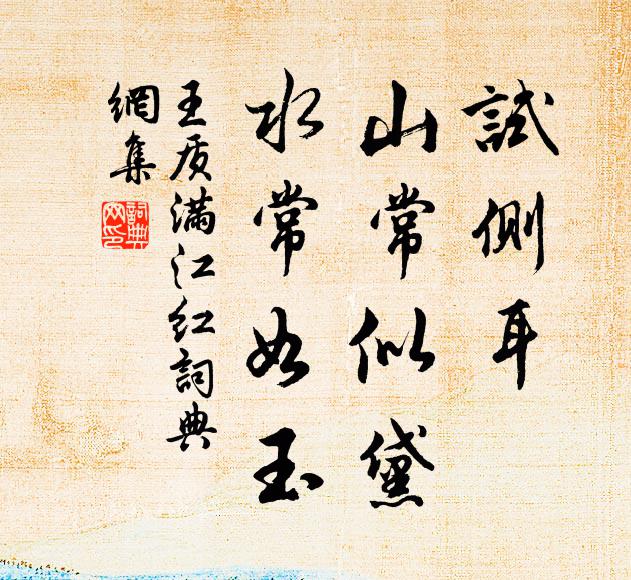 試側耳
山常似黛
水常如玉
王质满江红詞典
網集
詞典
网印